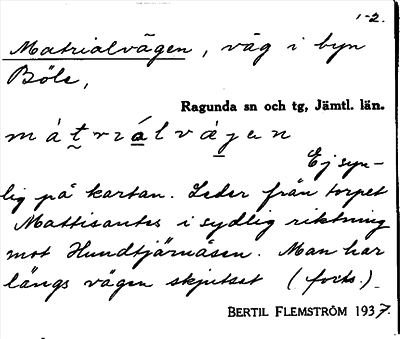 1-2.
Matrialvägen, väg i byn
Böle,
Ragunda sn och tg, Jämtl. län.
Ej syn-
lig på kartan. Leder från torpet
Mattisantes i sydlig riktning
mot Hundtjärnåsen. Man har
längs vägen skjutsat (forts.)
BERTIL FLEMSTRÖM 1937.